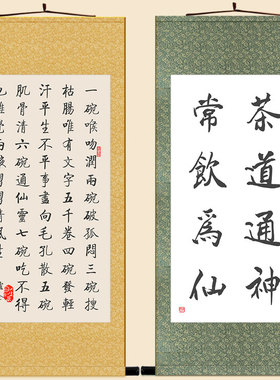 茶道通神
常飲爲仙
一碗喉吻潤兩碗破孤悶三碗搜
枯腸唯有文字五千卷四碗發輕
汗平生不平事盡向毛孔散五碗
肌骨清六碗通仙靈七碗吃不得
也唯覺兩腋習習清風生